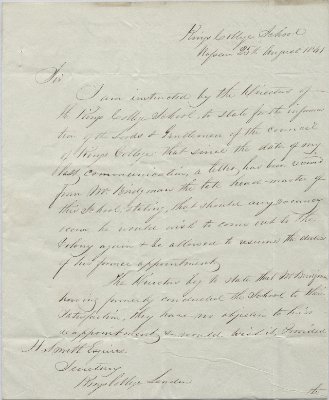 Kings College School
Nassau 25th August 1841
Sir
I am instructed by the Directors of
the Kings College School, to state for the information
of the Lords & Gentlemen of the Council
of Kings College that since the date of my
last communication, a letter, has been received
from Mr Bridgman the late head-master of
this School stating, that should any vacancy
occur he would wish to come out to the
Colony again & be allowed to resume the duties
of his former appointment,
The Directors beg to state that Mr Bridgman
having formerly conducted the School to their
satisfaction, they have no objection to his
reappointment, & would wish it, provided
H. Smith Esquire
Secretary
Kings College London
the